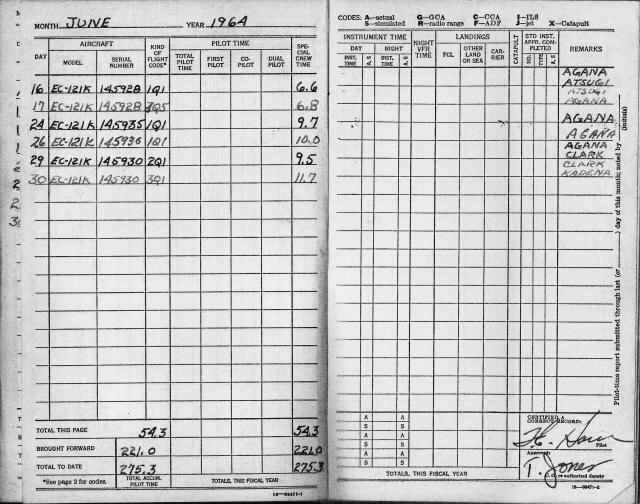 MONTH JUNE YEAR 1964
DAY
AIRCRAFT
MODEL
SERIAL NUMBER
KIND OF FLIGHT CODE*
PILOT TIME
TOTAL PILOT TIME
FIRST PILOT
CO-PILOT
DUAL PILOT
SPECIAL CREW TIME
16 EC-121K 145928 1Q1 6.6
17 EC-121K 145928 3Q5 6.8
24 EC-121K 145935 1Q1 9.7
26 EC-121K 145936 1Q1 10.0
29 EC-121K 145930 2Q1 9.5
30 EC-121K 145930 3Q1 11.7
TOTAL THIS PAGE 54.3 54.3
BROUGHT FORWARD 221.0 221.0
TOTAL TO DATE 275.3 275.3
*See page 2 for codes.
TOTAL ACCUM. PILOT TIME
TOTALS, THIS FISCAL YEAR
CODES: A—actual G—GCA C—CCA I—ILS
S—simulated R—radio range F—ADF J—jet X—Catapult
INSTRUMENT TIME
DAY
NIGHT
INST. TIME
A, S
INST. TIME
A, S
NIGHT VFR TIME
LANDINGS
FCL
OTHER LAND OR SEA
CARRIER
CATAPULT
STD INST. APPT. COMPLETED
NO.
TYPE
A, S
REMARKS
AGANA
ATSUGI
ATSUGI
AGANA
AGANA
AGANA
AGANA
CLARK
CLARK
KADENA
A A
S S
A A
S S
A A
S S
TOTALS, THIS FISCAL YEAR
CERTIFIED A CORRECT RECORD:
Pilot
Approved:
T. Jones
C. O. or authorized deputy
Pilot-time report submitted through last ( or ) day of this month; noted by (initials)